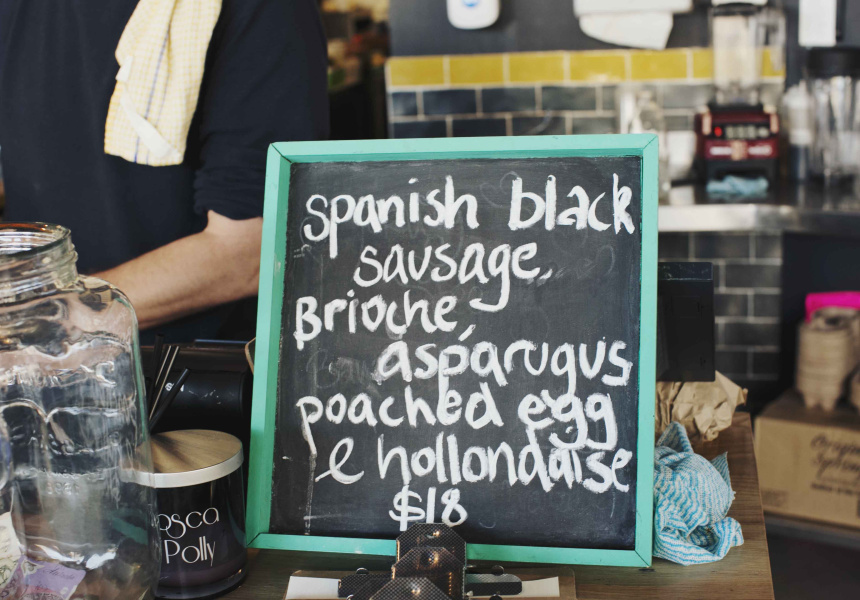 Spanish black
sausage,
Brioche,
asparugus
poached egg
& hollondaise
$18
osca
Polly